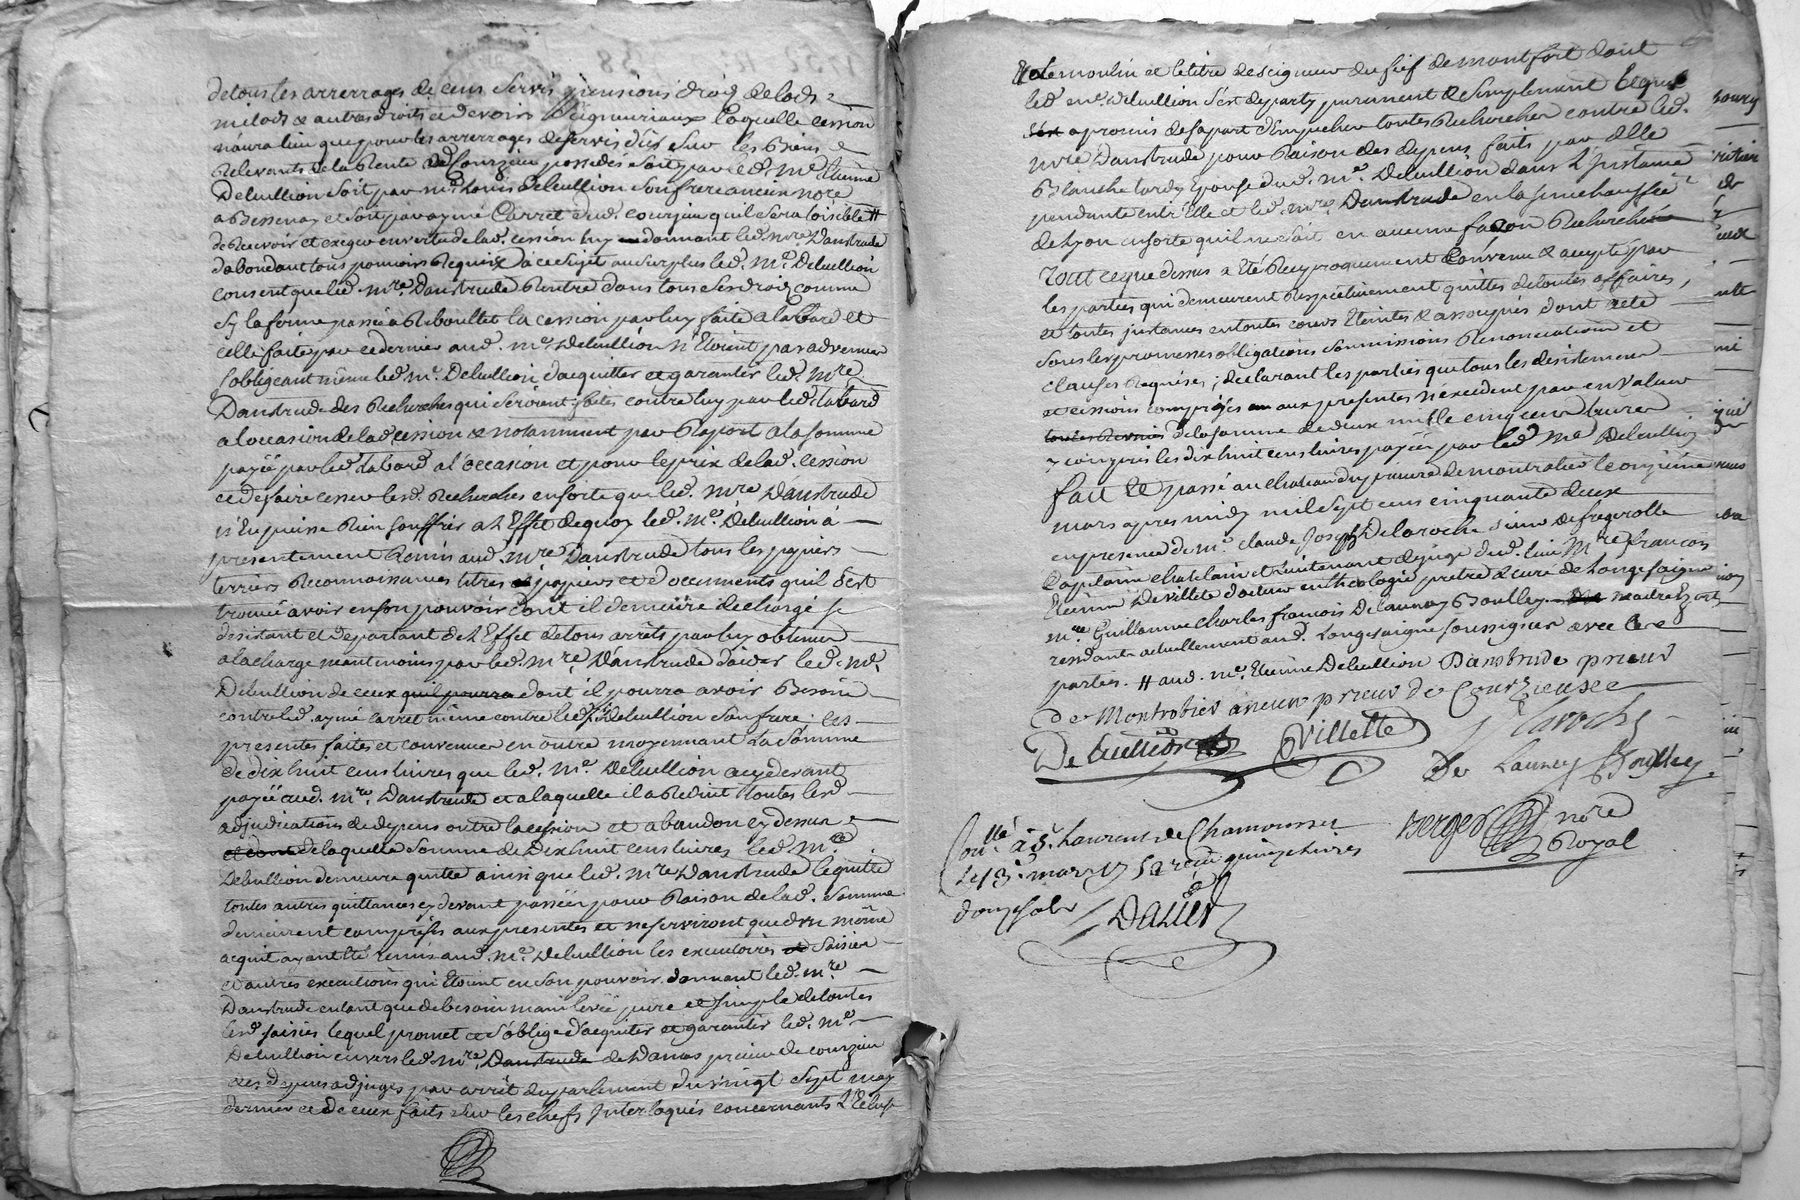 de tous les arrerrages de cens servis pensions droits de lods &
milods & autres droits et devoirs seigneuriaux laquelle cession
n'aura lieu que pour les arrerrages de servis dus sur les biens
relevants de la rente de Courzieu possedés soit par led. Me Etienne
Debullion soit par me Louis Debullion son frere ancien nore
a Bessenay et soit par aymé Carret dud. courzieu qu'il sera loisible #
de recevoir et exiger en vertu de lad. cession luy donnant led. mre Danstrude
d'abondant tous pouvoirs requis a ce sujet au surplus led. Me Debullion
consent que led. mre Danstrude rentre dans tous ses droits comme
sy la ferme passée a Reboullet la cession par luy faite a labard et
celle faite par ce dernier aud. me Debullion n'etoient pas advenues
s'obligeant même led. Me Debullion d'acquitter et garantir led. mre
Danstrude des recherches qui seroient faites contre luy par led. labard
a l'occasion de lad. cession & notamment par raport a la somme
payée par led. labard a l'occasion et pour le prix de lad. cession
et de faire cesser lesd. recherches en sorte que led. mre Danstrude
n'en puisse rien souffrir a l'effet de quoy led. Me Debullion a
presentement remis aud. mre Danstrude tous les papiers
terriers reconnoissances titres papiers et documents qu'il s'est
trouvé avoir en son pouvoir dont il demeure dechargé se
desistant et departant de l'effet de tous arrêts par luy obtenus
a la charge neantmoins par led. mre Danstrude d'aider led. me
Debullion de ceux qu'il pourra dont il pourra avoir besoin
contre led. aymé carret même contre led. Debullion son frere; les
presentes faites et convenues en outre moyennant la somme
de dix huit cens livres que led. Me Debullion a cy devant
payée aud. mre Danstrude et a laquelle il a reduit toutes lesd.
adjudications de depens outre la cession et abandon cy dessus
de laquelle somme de dix huit cens livres led. me
Debullion demeure quitte ainsi que led. mre Danstrude le quitte
toutes autres quittances cy devant passées pour raison de lad. somme
demeurent comprises aux presentes et ne serviront que d'un même
acquit ayant eté remis aud. me Debullion les executoires saisies
et autres executions qui etoient en son pouvoir donnant led. mre
Danstrude en tant que de besoin main levée pure et simple de toutes
lesd. saisies lequel promet et s'oblige d'acquiter et garantir led. Me
Debullion envers led. mre Danstrude de Damas prieur de courzieu
des depens adjugés par arrêt du parlement du vingt sept may
dernier et de ceux faits sur les chefs interloqués concernants l'ecluse
# le moulin et le titre de seigneur du fief de montfort dont
led. me Debullion s'est departy purement & simplement lequel
s'est a promis de sa part d'empecher toutes recherches contre led.
mre Danstrude pour raison des depens faits par delle
Blanche tardy epouse dud. me Debullion dans l'instance
pendante entr'elle et led. mre Danstrude en la senechaussée
de Lyon en sorte qu'il ne soit en aucune façon recherché
tout ce que dessus a eté reciproquement convenu & accepté par
les parties qui demeurent respectivement quittes de toutes affaires,
et toutes instances en toutes cours eteintes & assoupies dont acte
sous les promesses obligations soumissions renonciations et
clauses requises; declarant les parties que tous les desistements
et cessions comprises aux presentes n'excedent pas en valeur
de la somme de deux mille cinq cens livres
y compris les dix huit cens livres payées par led. Me Debullion
fait et passé au chateau du prieuré de montrotier le onzieme
mars apres midy mil sept cens cinquante deux
en presence de me claude Joseph Delaroche sieur de fregerolle
Capitaine chatelain et lieutenant de juge dud. lieu Mre françois
Etienne De villete docteur en theologie pretre & curé de Longesaigne
mre Guillaume charles francois De launay Boulley
residants actuellement aud. Longesaigne soussignés avec les
parties. # aud. me Etienne Debullion Danstrude prieur
de Montrotier ancien prieur de Courzieu
De bullion Villette Laroche
De Launey Boulley
Conllé a St Laurent de Chamousset
le 13e mars 1752 reçu quinze livres
douze sols
Dalier
Berger nore
Royal